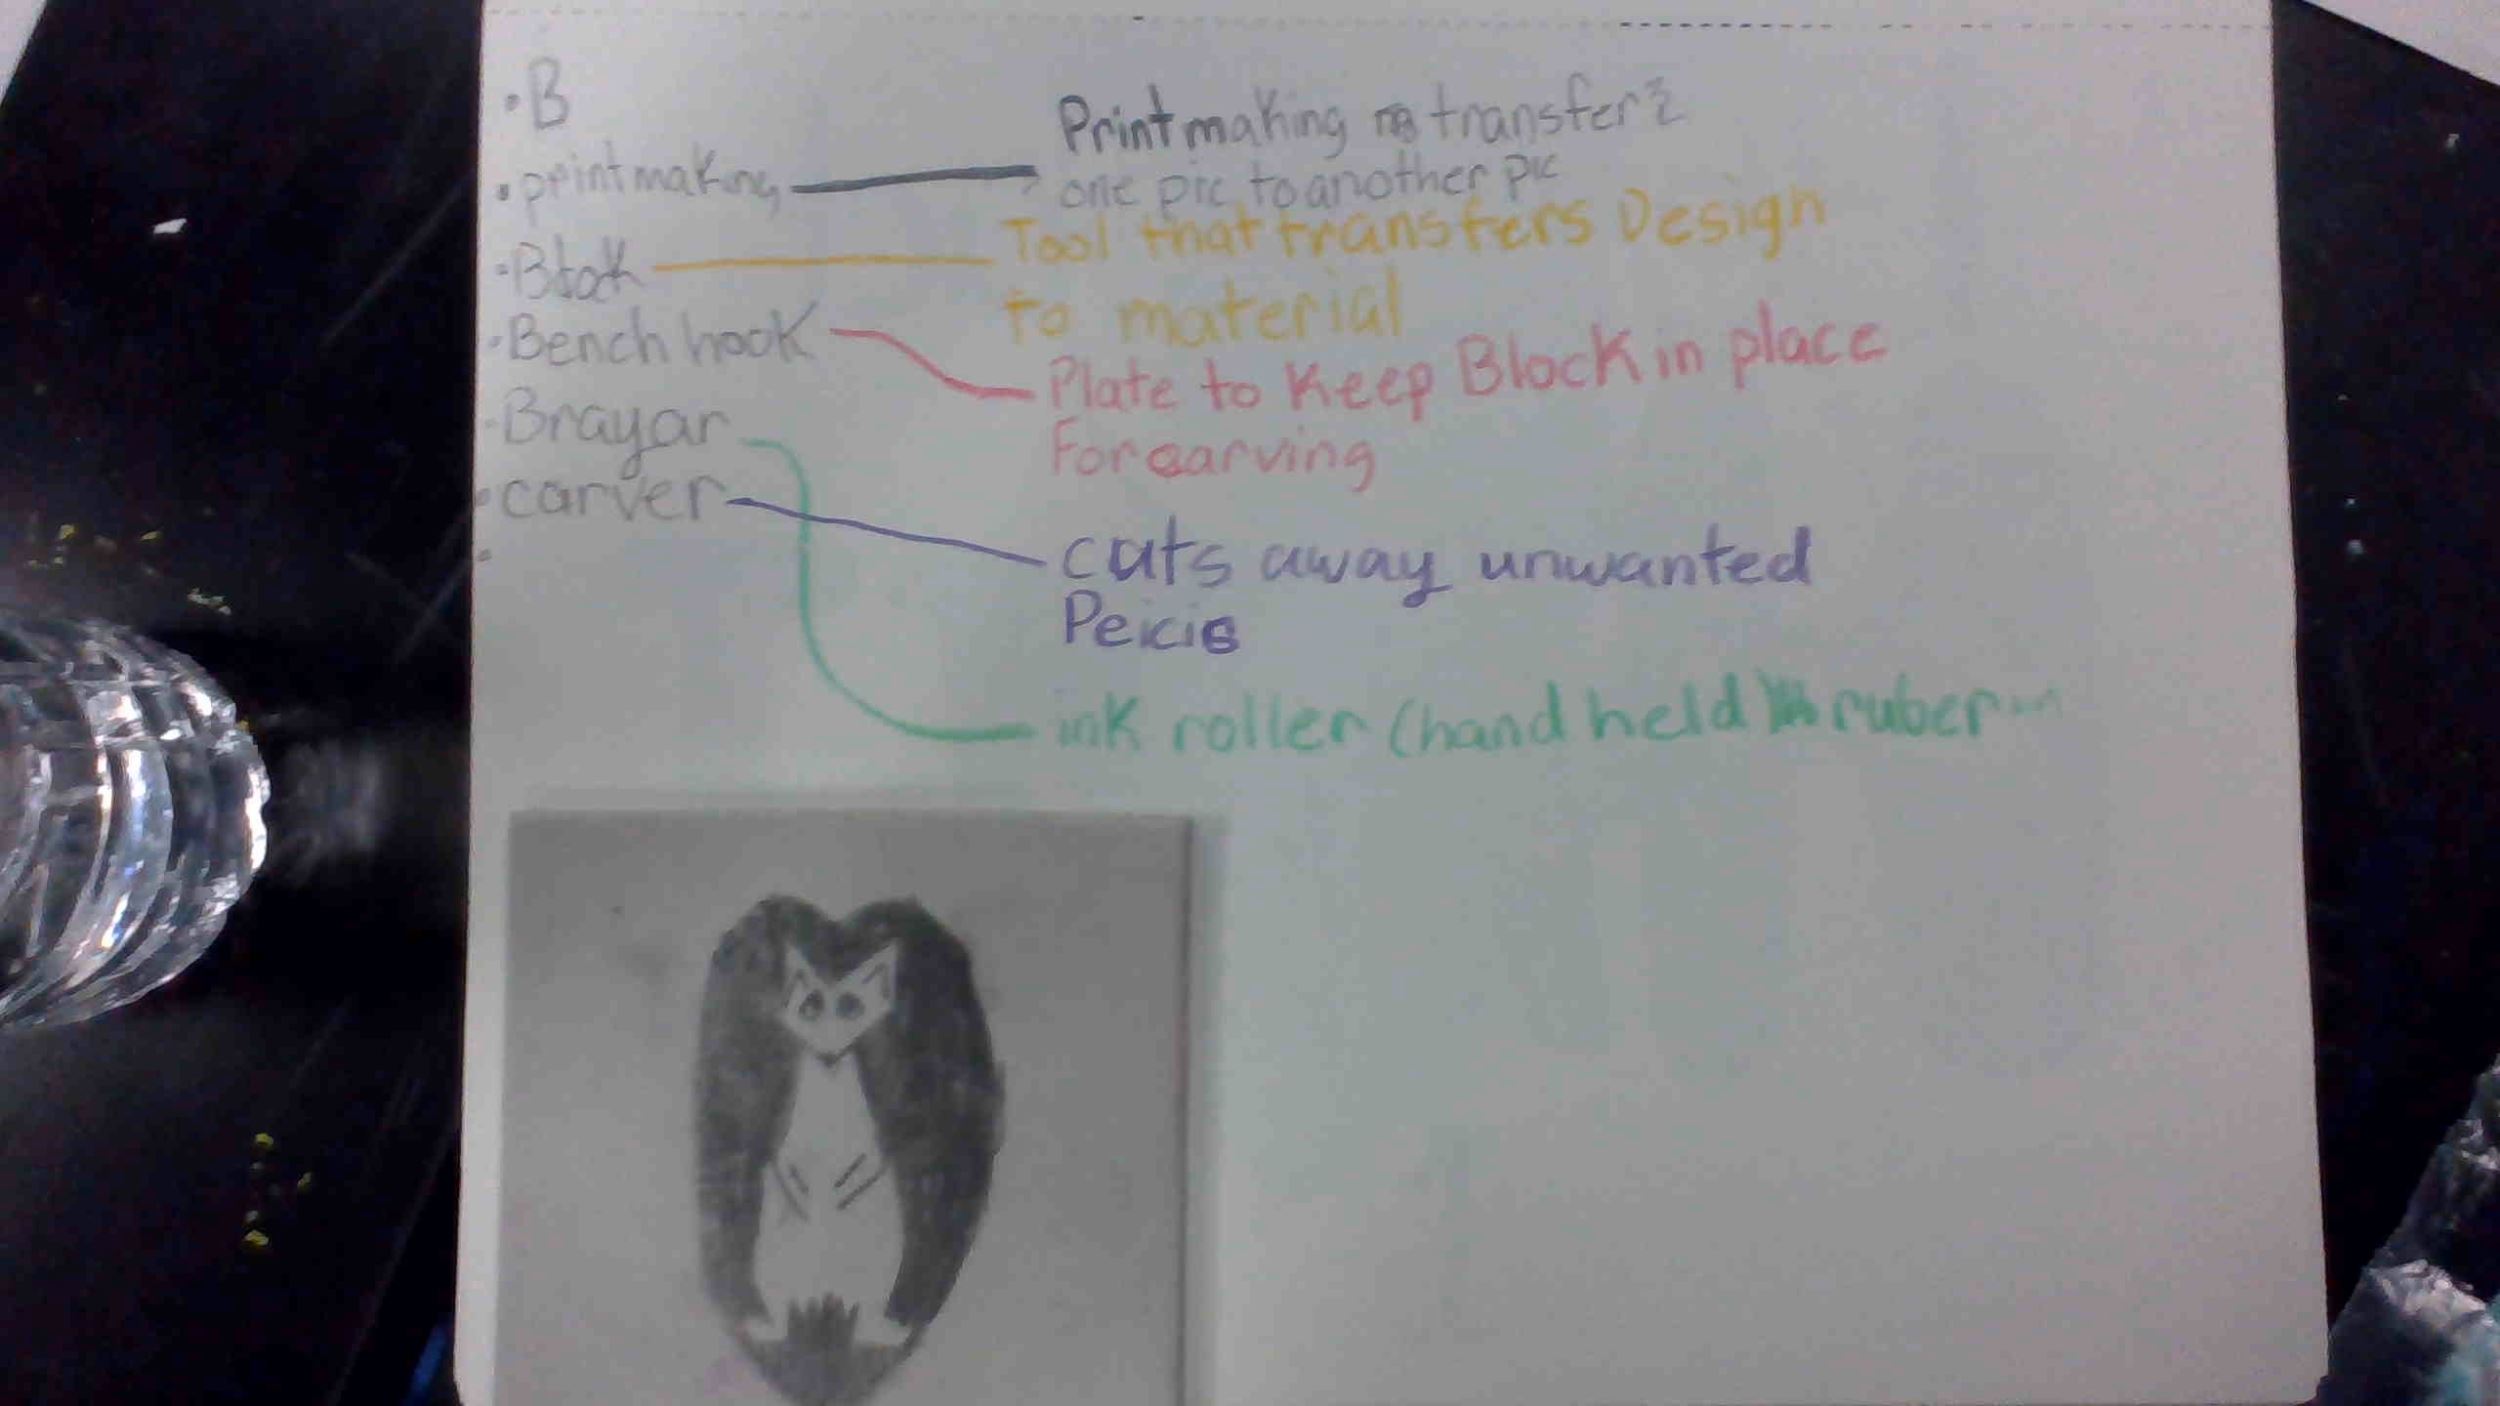 ·B
·printmaking
·Block
·Bench hook
·Brayar
·carver
·
Printmaking transfer
one pic to another pic
Tool that transfers Design
to material
Plate to Keep Block in place
For carving
cuts away unwanted
Peicis
ink roller (hand held) ruber